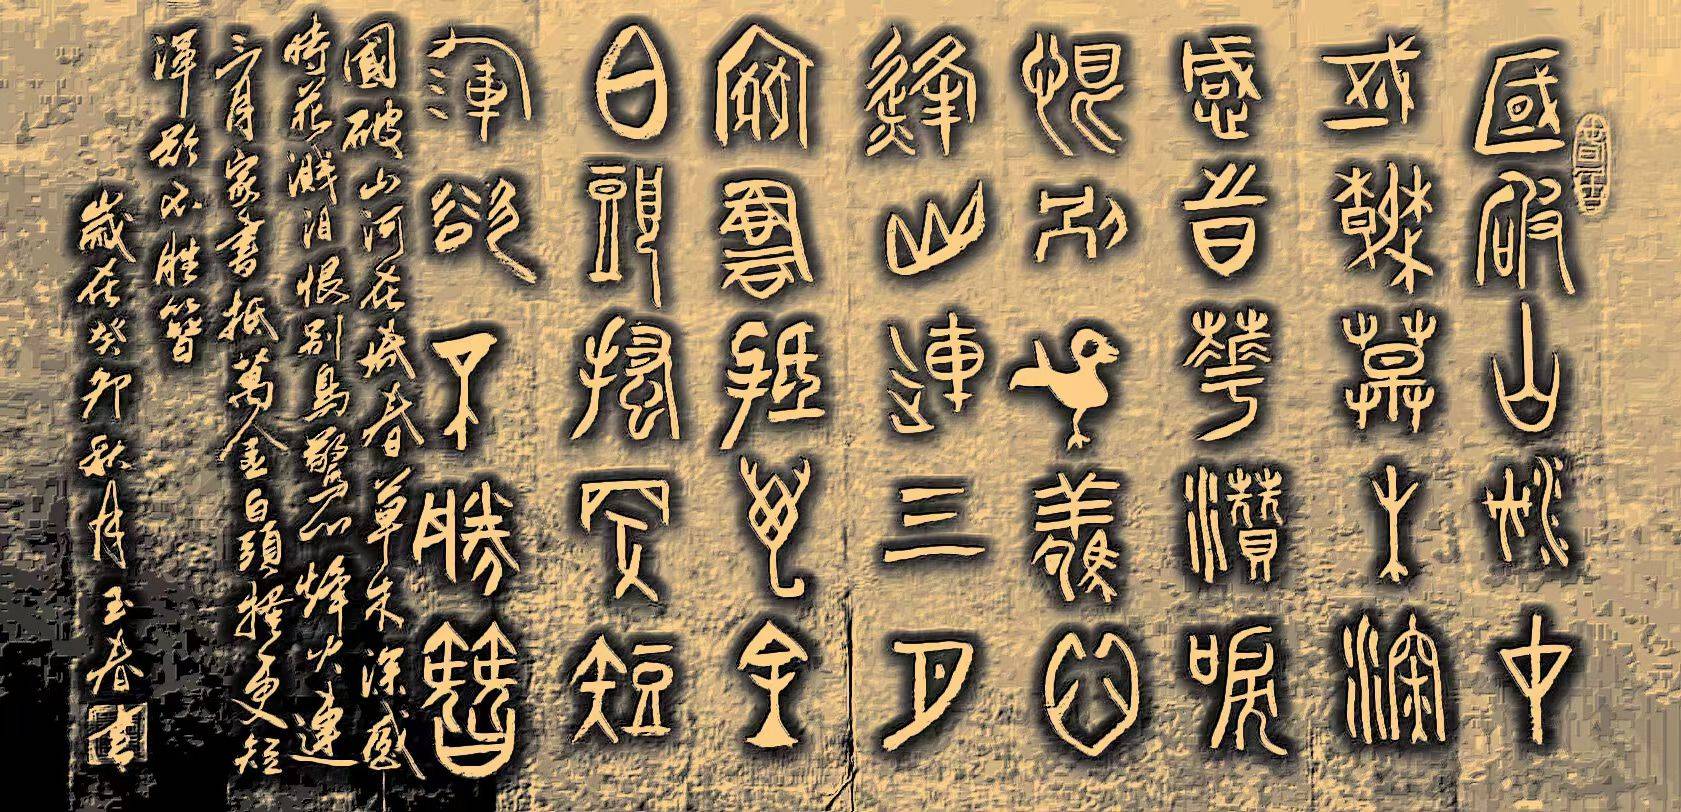 國破山河在
城春草木深
感時花濺淚
恨別鳥驚心
烽火連三月
家書抵萬金
白頭搔更短
渾欲不勝簪
國破山河在城春草木深感
時花濺泪恨别鳥驚心烽火連
三月家書抵萬金白頭搔更短
渾欲不勝簪
歲在癸卯秋月玉春書